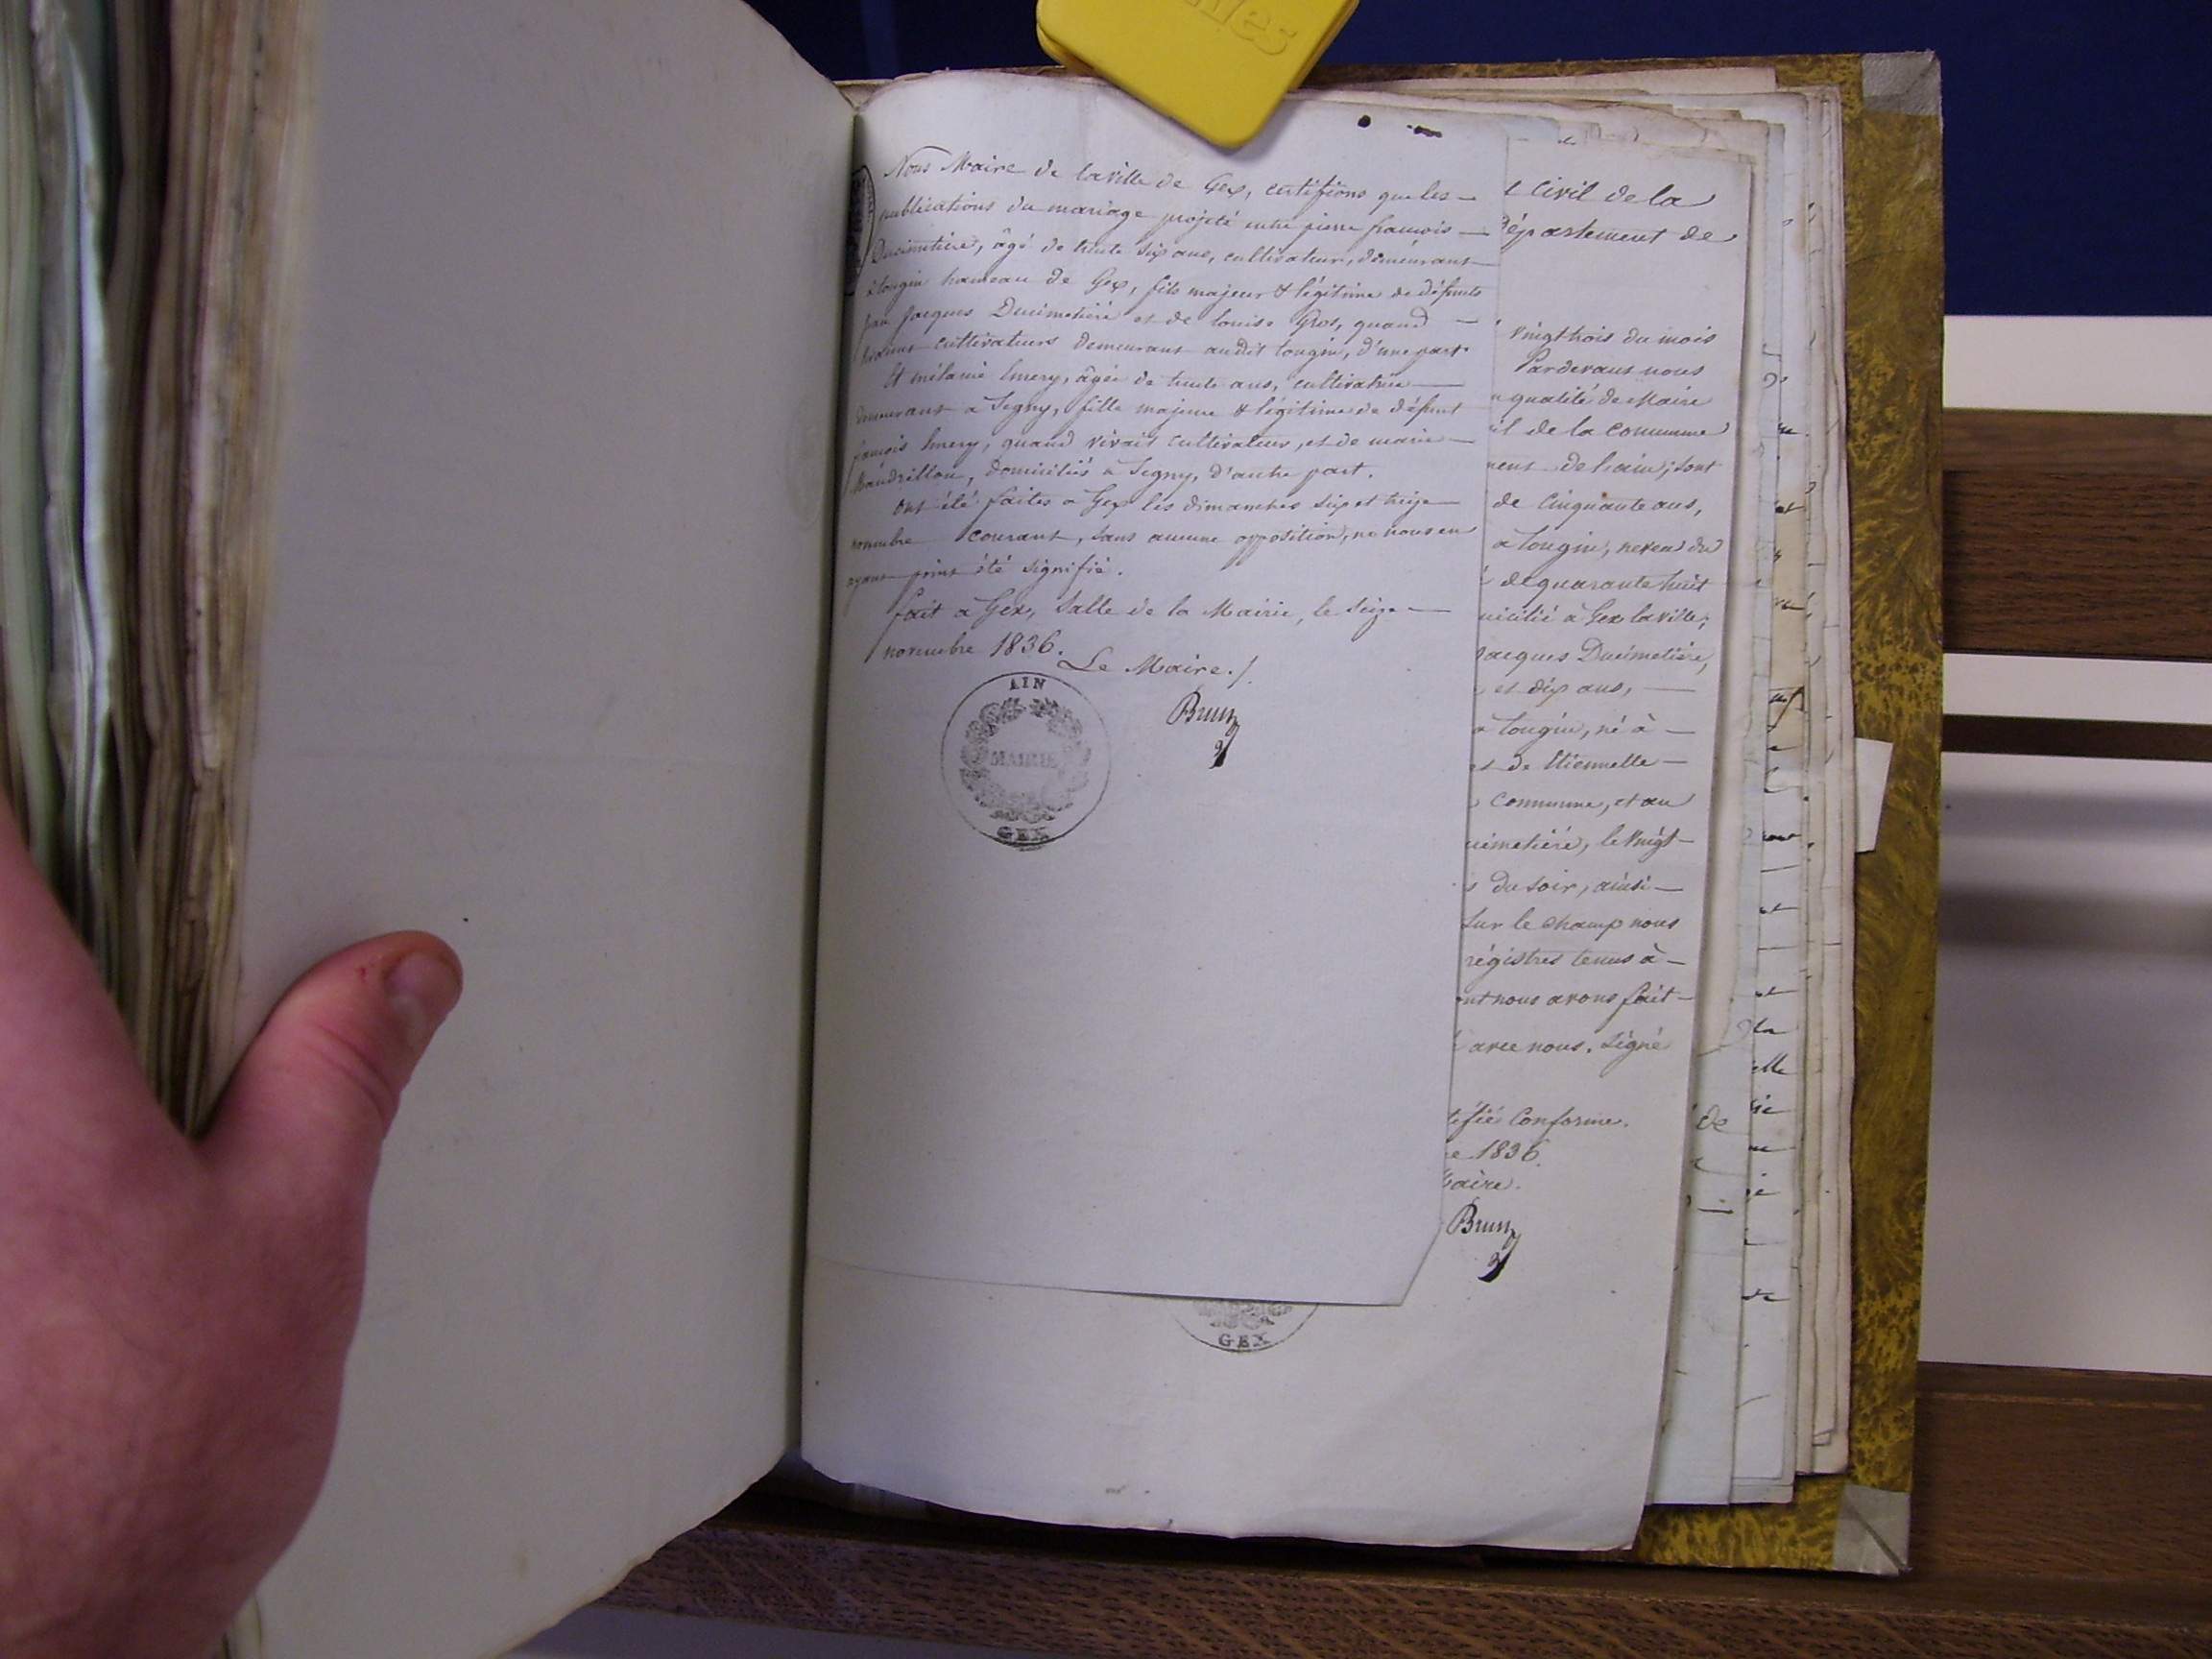 Nous Maire de la ville de Gex, certifions que les
publications du mariage projeté entre pierre francois
Ducimetière, âgé de trente six ans, cultivateur, demeurant
à tougin hameau de Gex, fils majeur & légitime de défunts
Jean Jacques Ducimetière et de louise Gros, quand
vivaient cultivateurs demeurant audit tougin, d'une part.
Et mélanie Emery, âgée de trente ans, cultivatrice
demeurant à Segny, fille majeure & légitime de défunt
françois Emery, quand vivait cultivateur, et de marie
domiciliés à Segny, d'autre part.
Ont été faites à Gex les dimanches six et treize
novembre courant, sans aucune opposition, ne nous en
ayant point été signifié.
fait à Gex, Salle de la Mairie, le seize
novembre 1836.
Le Maire./.
Brun
AIN
MAIRIE
GEX
t Civil de la
Département de
vingt trois du mois
Pardevant nous
n qualité de Maire
il de la commune
ment de l'ain; sont
de Cinquante ans,
à tougin, neveu du
é de quarante huit
micilié à Gex la ville;
Jacques Ducimetière,
et dix ans,
à tougin, né à
et de Etiennette
Commune, et au
cimetière, le vingt
s du soir, ainsi
Sur le champ nous
régistres tenus à
ont nous avons fait
avec nous. Signé
tifié Conforme.
re 1836.
Maire.
Brun
GEX
de